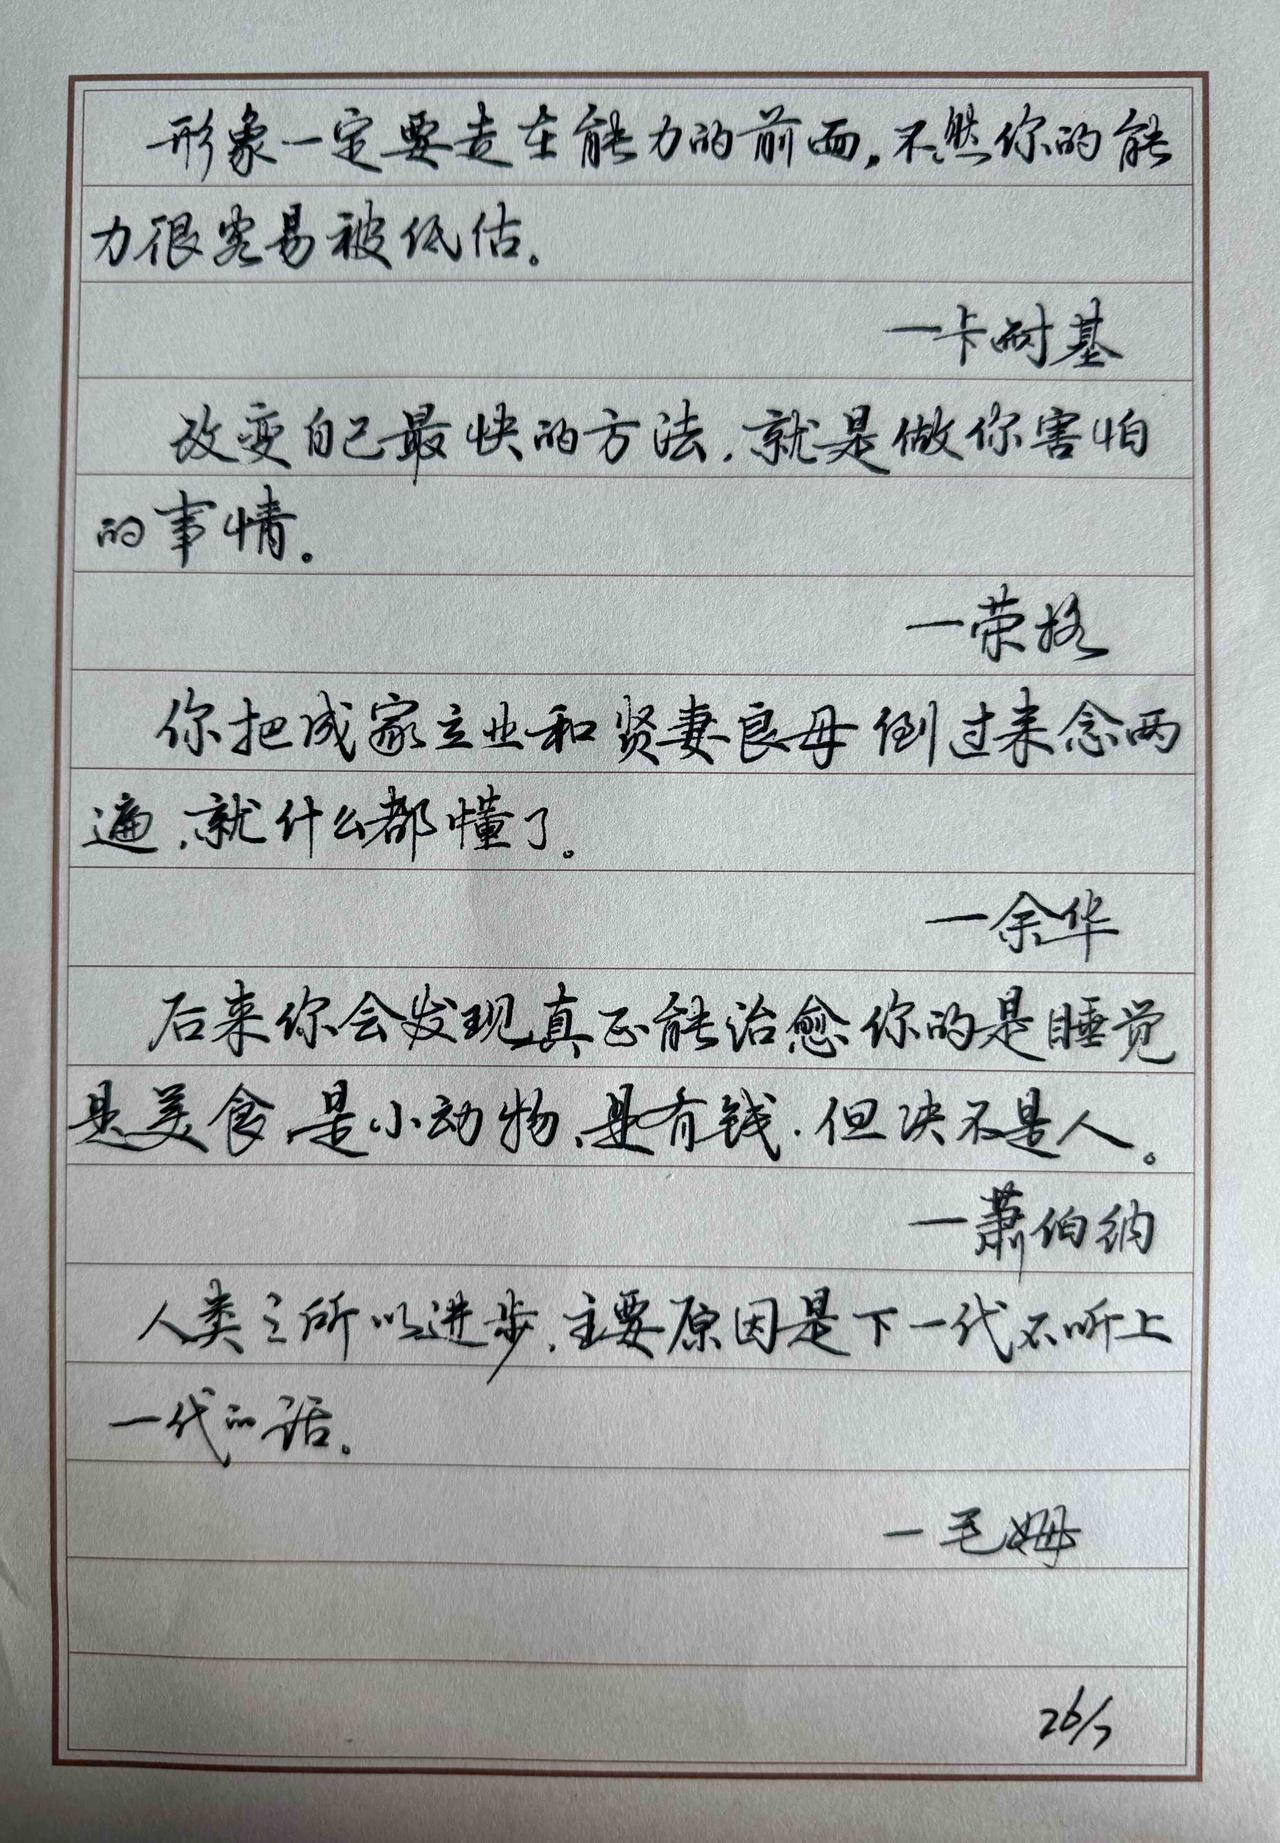 形象一定要走在能力的前面，不然你的能
力很容易被低估。
一卡耐基
改变自己最快的方法，就是做你害怕
的事情。
一荣格
你把成家立业和贤妻良母倒过来念两
遍，就什么都懂了。
一余华
后来你会发现真正能治愈你的是睡觉
是美食，是小动物，是有钱，但决不是人。
一萧伯纳
人类之所以进步，主要原因是下一代不听上
一代的话。
一毛姆
26/7